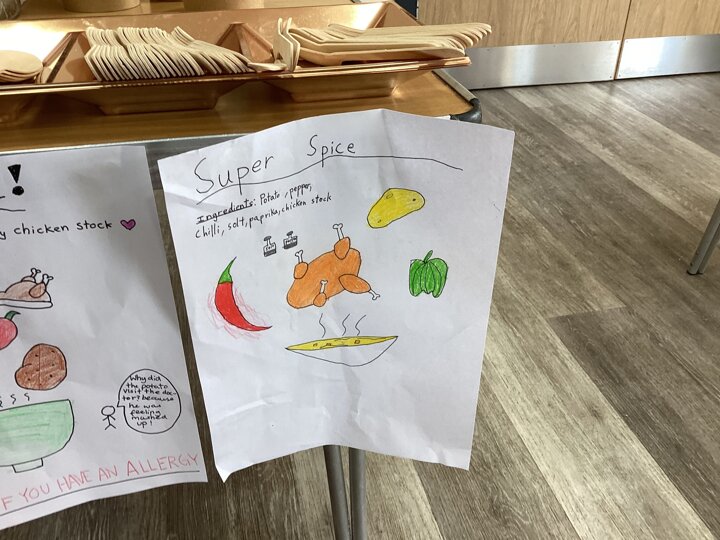 !
y chicken stock
Why did
the potato
visit the doc-
tor? because
he was
feeling
mashed
up!
F YOU HAVE AN ALLERGY
Super Spice
Ingredients: Potato, pepper,
Chilli, solt, paprika, chicken stock